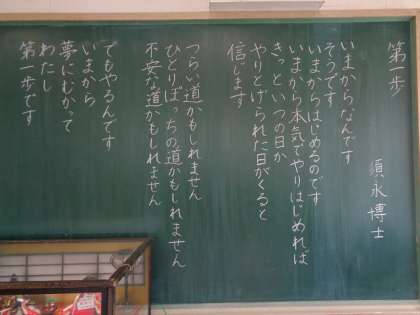 第一歩
須永博士
いまからなんです
そうです
いまからはじめるのです
いまから本気でやりはじめれば
きっといつの日か
やりとげられた日がくると
信じます
つらい道かもしれません
ひとりぼっちの道かもしれません
不安な道かもしれません
でもやるんです
いまから
夢にむかって
わたし
第一歩です